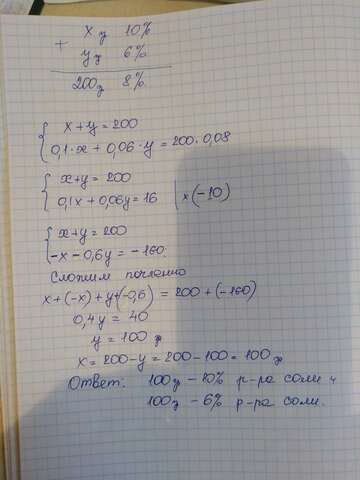 x г 10%
+
y г 6%
200г 8%.
{ x+y = 200
0,1·x + 0,06·y = 200·0,08
{ x+y = 200
0,1x + 0,06y = 16 | x(-10)
{ x+y = 200
-x - 0,6y = -160.
Сложим почленно
x+(-x)+y+(-0,6) = 200+(-160)
0,4y = 40
y = 100 г
x = 200-y = 200-100 = 100 г
Ответ: 100г - 10% р-ра соли и
100г - 6% р-ра соли.